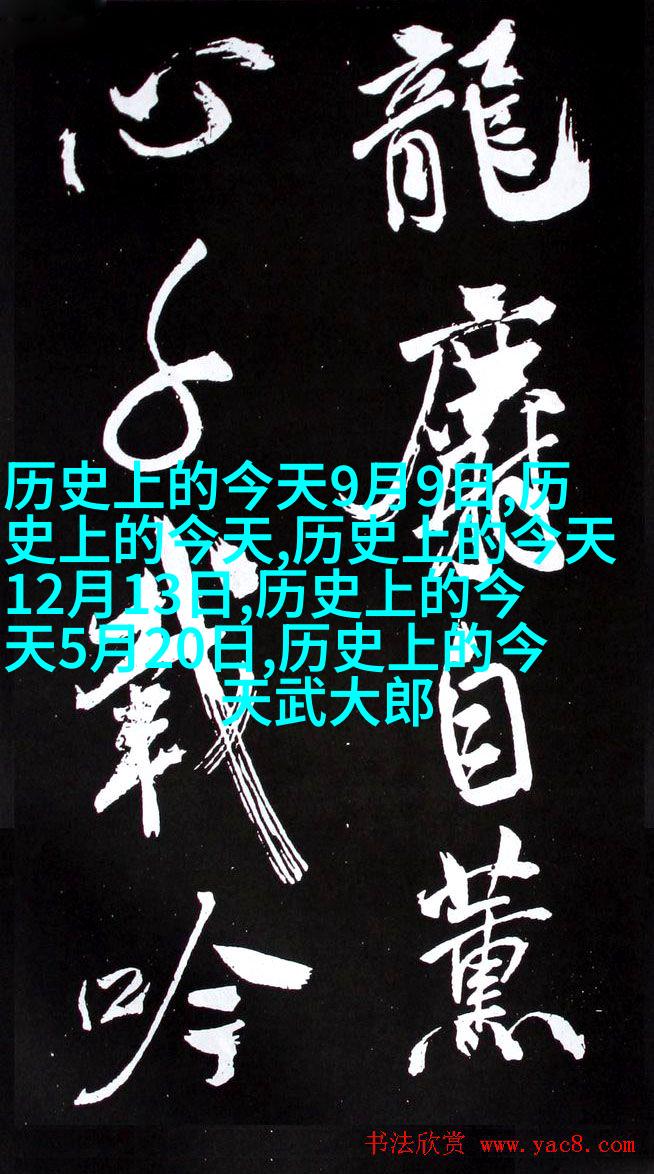 龍
自
薰
心
載
吟
历史上的今天9月9日,历
史上的今天,历史上的今天
12月13日,历史上的今
天5月20日,历史上的今
天武大郎
书法欣赏 www.yac8.com